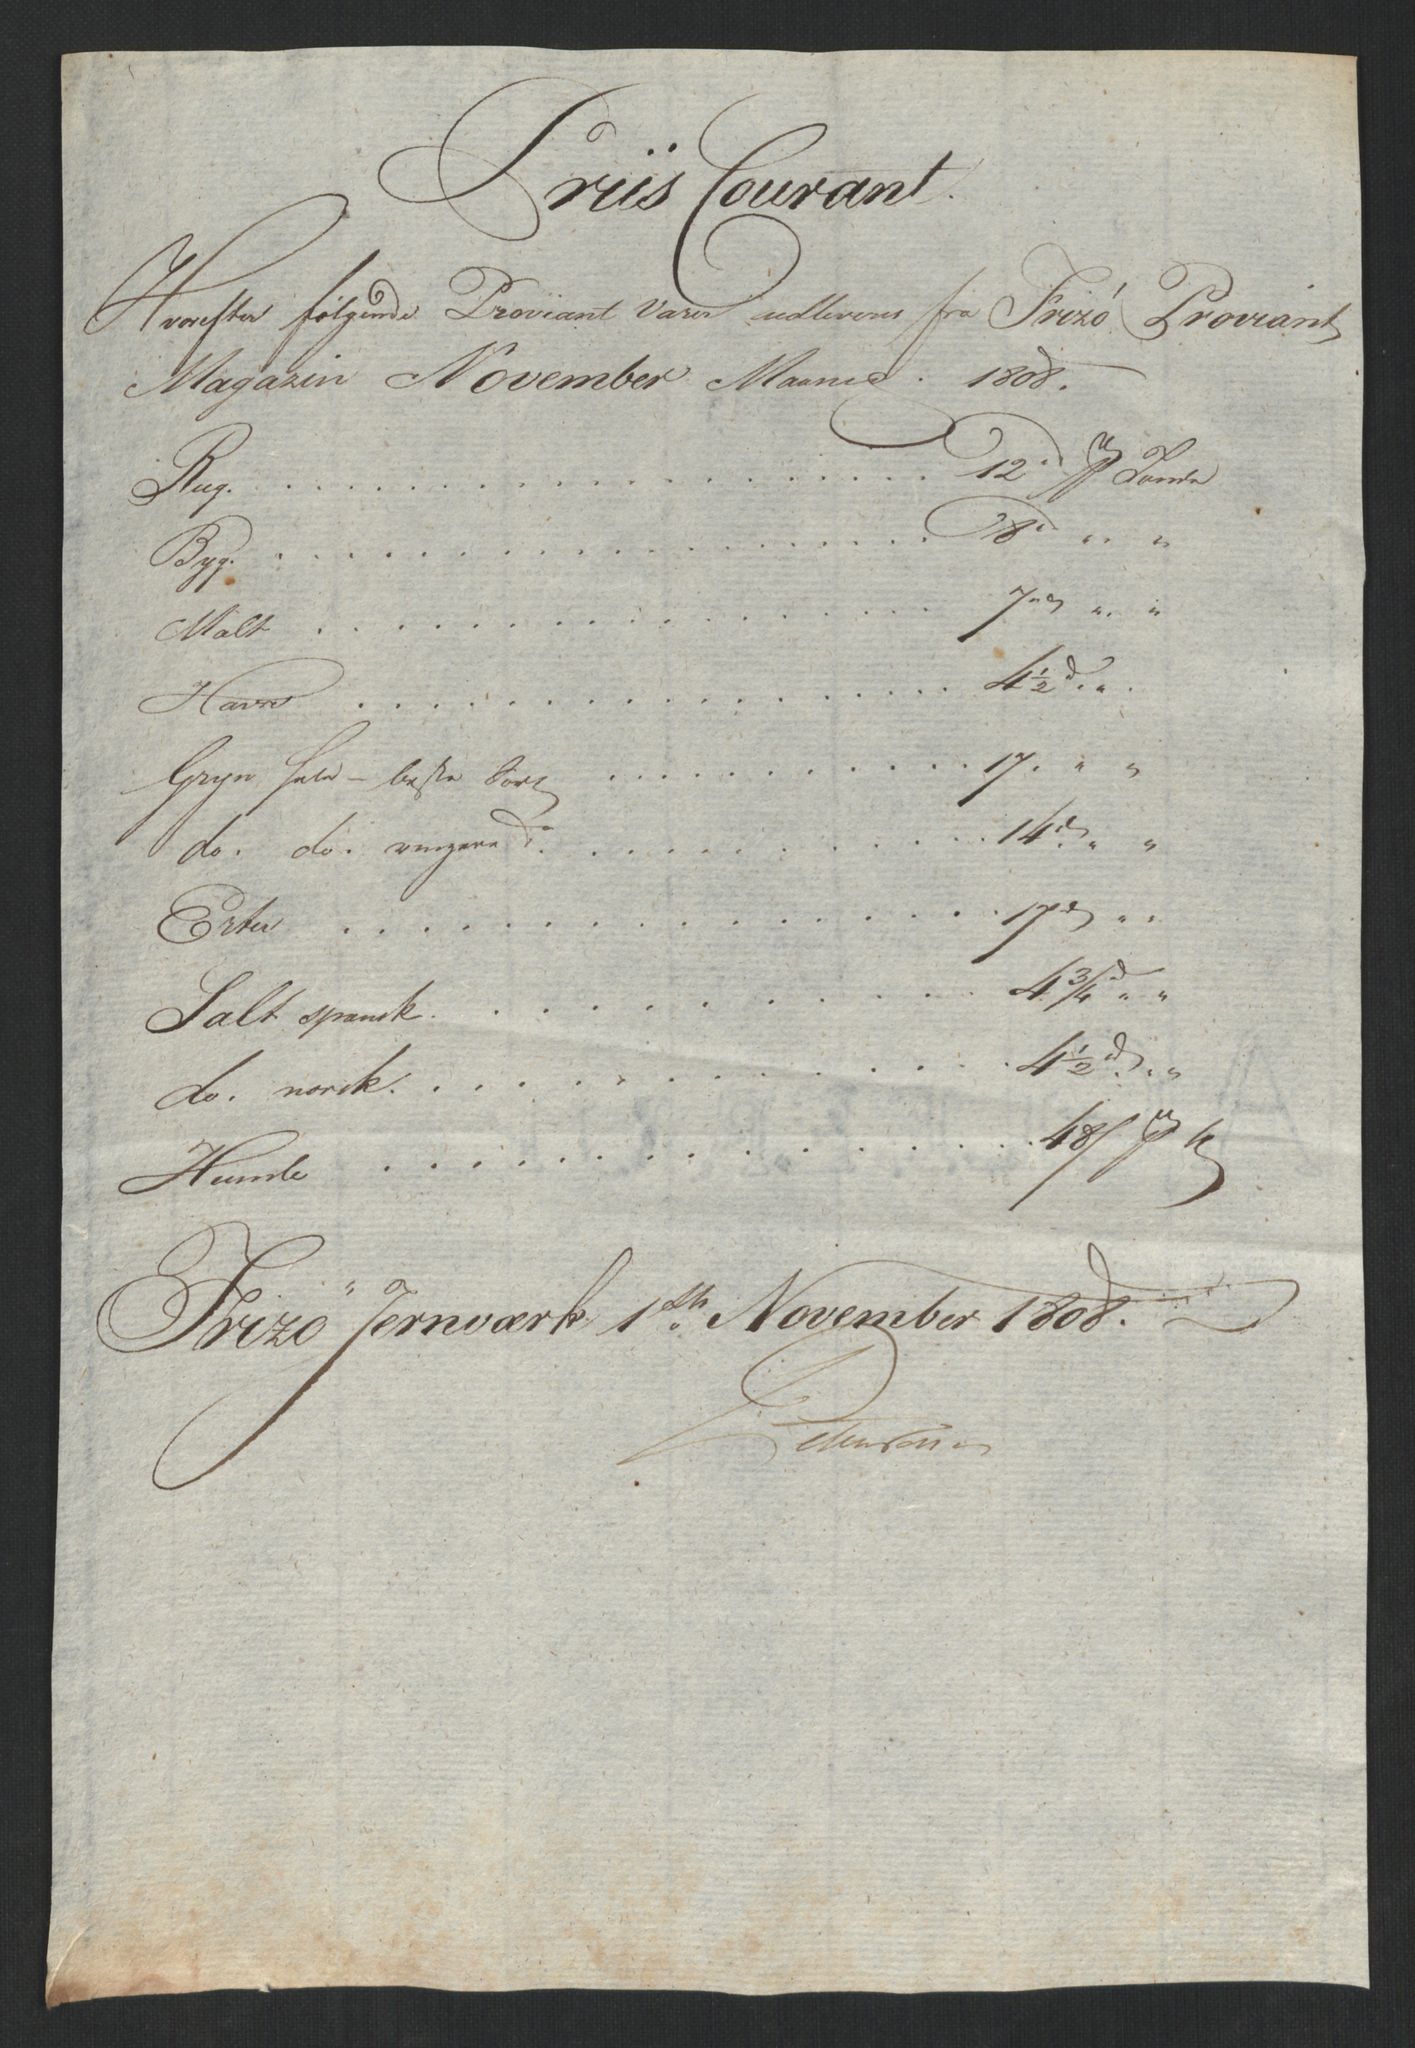 Priis Courant.
Hvorefter følgende Proviant Varer udleveres fra Frizø Proviant
Magazin November Maaned. 1808.
Rug. . . . . . . . . . . . . . . . . . . . . 12 d pr Tønde
Byg. . . . . . . . . . . . . . . . . . . . . 8 d " "
Malt . . . . . . . . . . . . . . . . . . . . 7 d " "
Havre . . . . . . . . . . . . . . . . . . . 4 1/2 d " "
Gryn hele - beste Sort . . . . . . . . . . . 17. " "
do. do. ringere do. . . . . . . . . . . . . 14 d " "
Erter . . . . . . . . . . . . . . . . . . . 17 d " "
Salt spansk. . . . . . . . . . . . . . . . . 4 3/4 d " "
do. norsk. . . . . . . . . . . . . . . . . . 4 1/2 d " "
Humle . . . . . . . . . . . . . . . . . . . 48 ß pr
Frizø Jernværk 1th. November 1808.